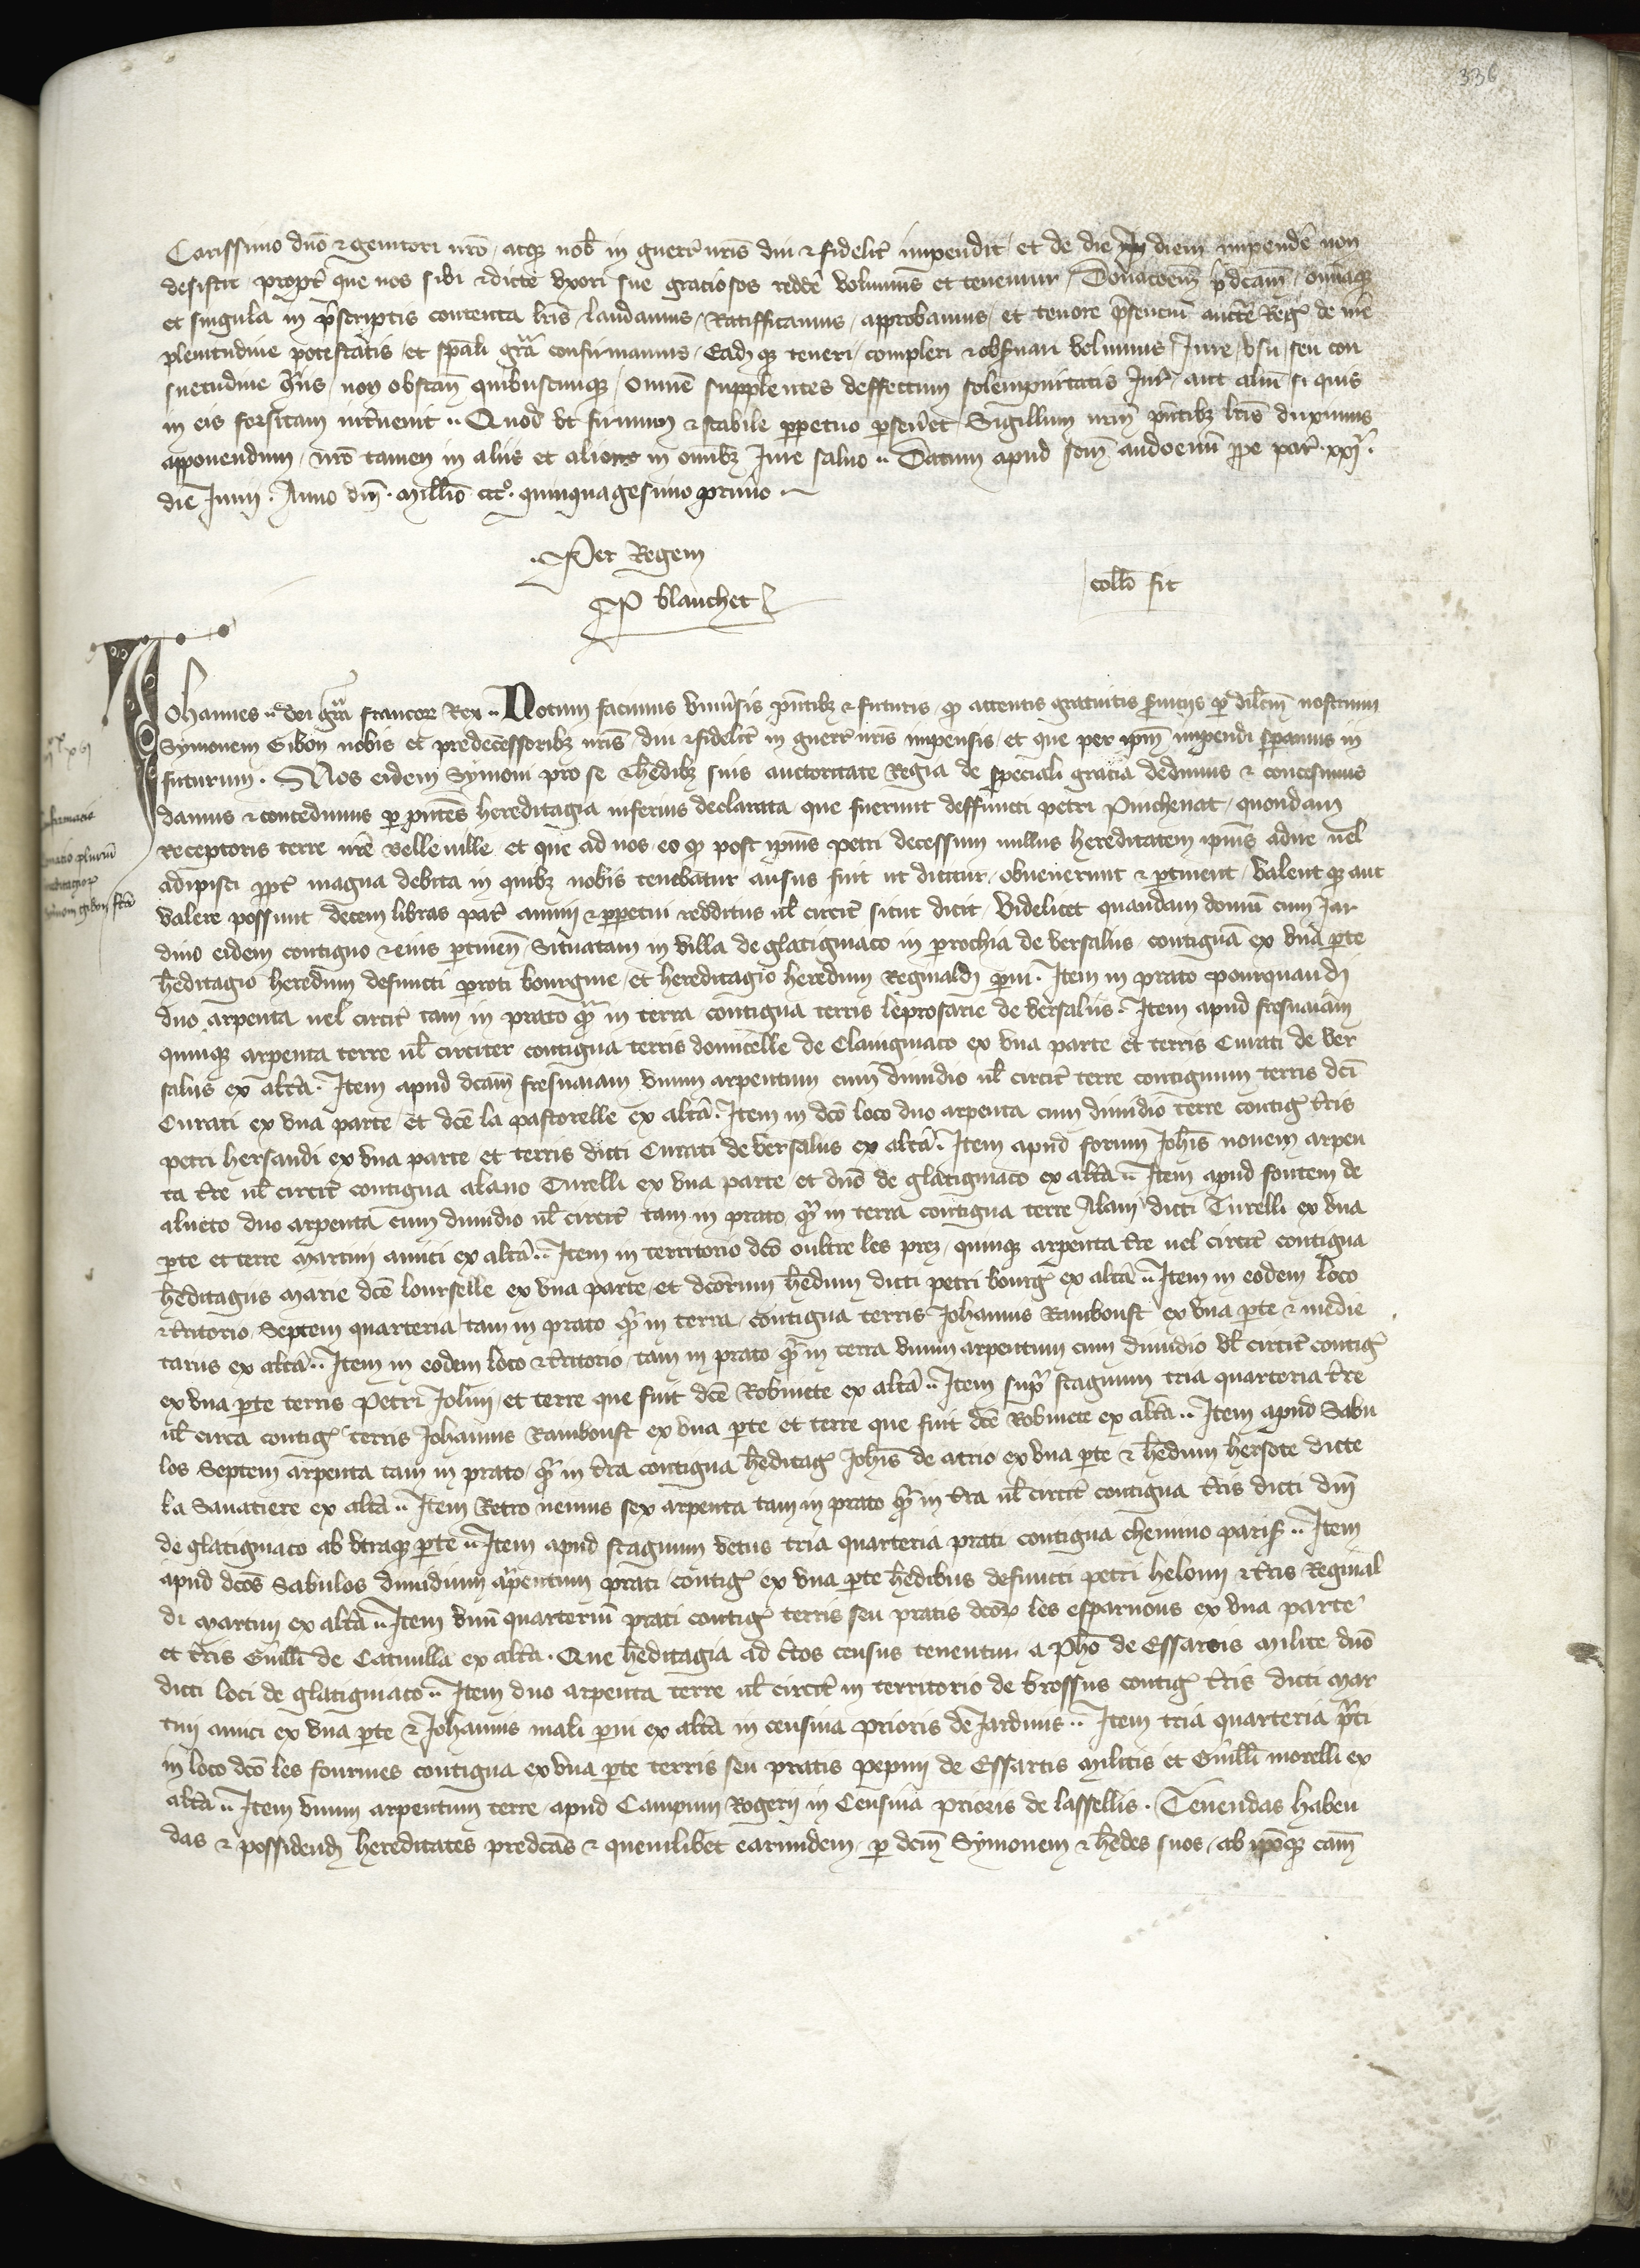 336
Carissimo dno & genitori nro, atqz nob in guerr nris diu & fidelit impendit, et de die in diem impende non
desistit propt que nos sibi & dicte vxori sue graciosos redde volumus et tenemur, Donacoem pdcam, omiaqz
et singula in pscriptis contenta lris, laudamus, Ratifficamus, approbamus, et tenore psenciu aucte Reg de nre
plenitudine potestatis, et spali gra confirmamus, Eadqz teneri, compleri & obsuari volumus, Jure, vsu, seu con
suetudine griis, non obstan quibuscunqz, omne supplentes deffectum solempnitatis Jur, aut aliu si quis
in eis forsitam interuenit .. Quod vt firmum & stabile perpetuo perseuet Sigillum nrm pntibz lris duximus
apponendum, nro tamen in aliis et alieno in omibz Jure saluo .. Datum apud scm audoenu ppe par . xxj .
die Junii . Anno dni . millio ccco . quinquagesimo primo .
. Per Regem
P blanchet
collo fit
Johannes .. dei gra francor Rex .. Notum facimus vniusis pntibz & futuris, qd attentis gratuitis seruiciis p dilcm nostrum
Symonem Gibon nobis et predecessoribz nris, diu & fidelit in guerr nris impensis, et que per ipm impendi speramus in
futurum . Nos eidem Symoni pro se & hedibz suis auctoritate Regia de speciali gracia dedimus & concessimus
damus & concedimus p pntes hereditagia inferius declarata, que fuerunt deffuncti petri Pinchenat, quondam
Receptoris terre nre velleuille et que ad nos, eo qd post ipius petri decessum nullus hereditatem ipius adire uel
adipisci ppt magna debita in quibz nobis tenebatur, ausus fuit ut dicitur, obuenerunt & ptinent, valent qz aut
valere possunt decem libras par annui & ppetui redditus ul circit sicut dicit, Videlicet quandam domu cum Jar
dino eidem contiguo & eius ptinen, Situatam in villa de glatigniaco in prochia de versaliis, contigua ex vna pte
heditagio heredum defuncti peroti bourgine, et hereditagio heredum Reginaldi pui . Item in prato pourquandi
duo arpenta uel circit tam in prato qm in terra contigua terris leprosarie de versaliis . Item apud fresnaiam
quinqz arpenta terre ul circiter contigua terris domicelle de Clauigniaco ex vna parte et terris Curati de ver
saliis ex alta . Item apud dcam fresnaiam vnum arpentum cum dimidio ul circit terre contiguum terris dci
Curati ex vna parte, et dce la pastorelle ex alta . Item in dco loco duo arpenta cum dimidio terre contig tris
petri hersandi ex vna parte, et terris dicti Curati de versaliis ex alta . Item apud forum Johis nouem arpen
ta tre ul circit contigua alano Turelli ex vna parte et dno de glatigniaco ex alta .. Item apud fontem de
alneto duo arpenta cum dimidio ul circit tam in prato qm in terra contigua terre Alani dicti Turelli ex vna
pte et terre martini amici ex alta .. Item in territorio dco oultre les prez, quinqz arpenta tre uel circit contigua
heditagiis marie dce lourselle ex vna parte, et dcorum hedum dicti petri bourg ex alta .. Item in eodem loco
& tritorio, Septem quarteria tam in prato qm in terra, contigua terris Johannis Ramboust ex vna pte & medie
tarus ex alta .. Item in eodem loco & tritorio, tam in prato qm in terra vnum arpentum cum dimidio ul circit contig
ex vna pte terris Petri Jolini, et terre que fuit dce Robinete ex alta .. Item supra stagnum tria quarteria tre
ul circa contig terris Johannis Ramboust ex vna pte et terre que fuit dce Robinete ex alta .. Item apud Sabu
los Septem arpenta tam in prato, qm in tra contigua heditag Johis de atrio, ex vna pte & hedum hersote dicte
la Sauatiere ex alta .. Item Retro nemus sex arpenta tam in prato qm in tra ul circit contigua tris dicti dni
de glatigniaco ab vtraqz pte .. Item apud stagnum vetus tria quarteria prati contigua chemino paris .. Item
apud dcos Sabulos dimidium arpentum prati, contig ex vna pte hedibus defuncti petri helouin & tris Reginal
di martin ex alta .. Item vnu quarteriu prati contig terris seu pratis dcor les esparnous ex vna parte
et tris Guilli de Catnulla ex alta . Que heditagia ad ctos census tenentur a Pho de Essartis milite, dno
dicti loci de glatigniaco .. Item duo arpenta terre ul circit in territorio de brossus contig tris dicti mar
tini amici ex vna pte & Johannis mali pui ex alta in censiua prioris de Jardinis .. Item tria quarteria prati
in loco dco les fourmes contigua ex vna pte terris seu pratis pepini de Essartis militis et Guilli morelli ex
alta .. Item vnum arpentum terre, apud Campum Rogerii in Censiua prioris de lassellis . Tenendas haben
das & possidend hereditates predcas & quemlibet earumdem, p dcm Symonem & hedes suos, ab ipoqz cam